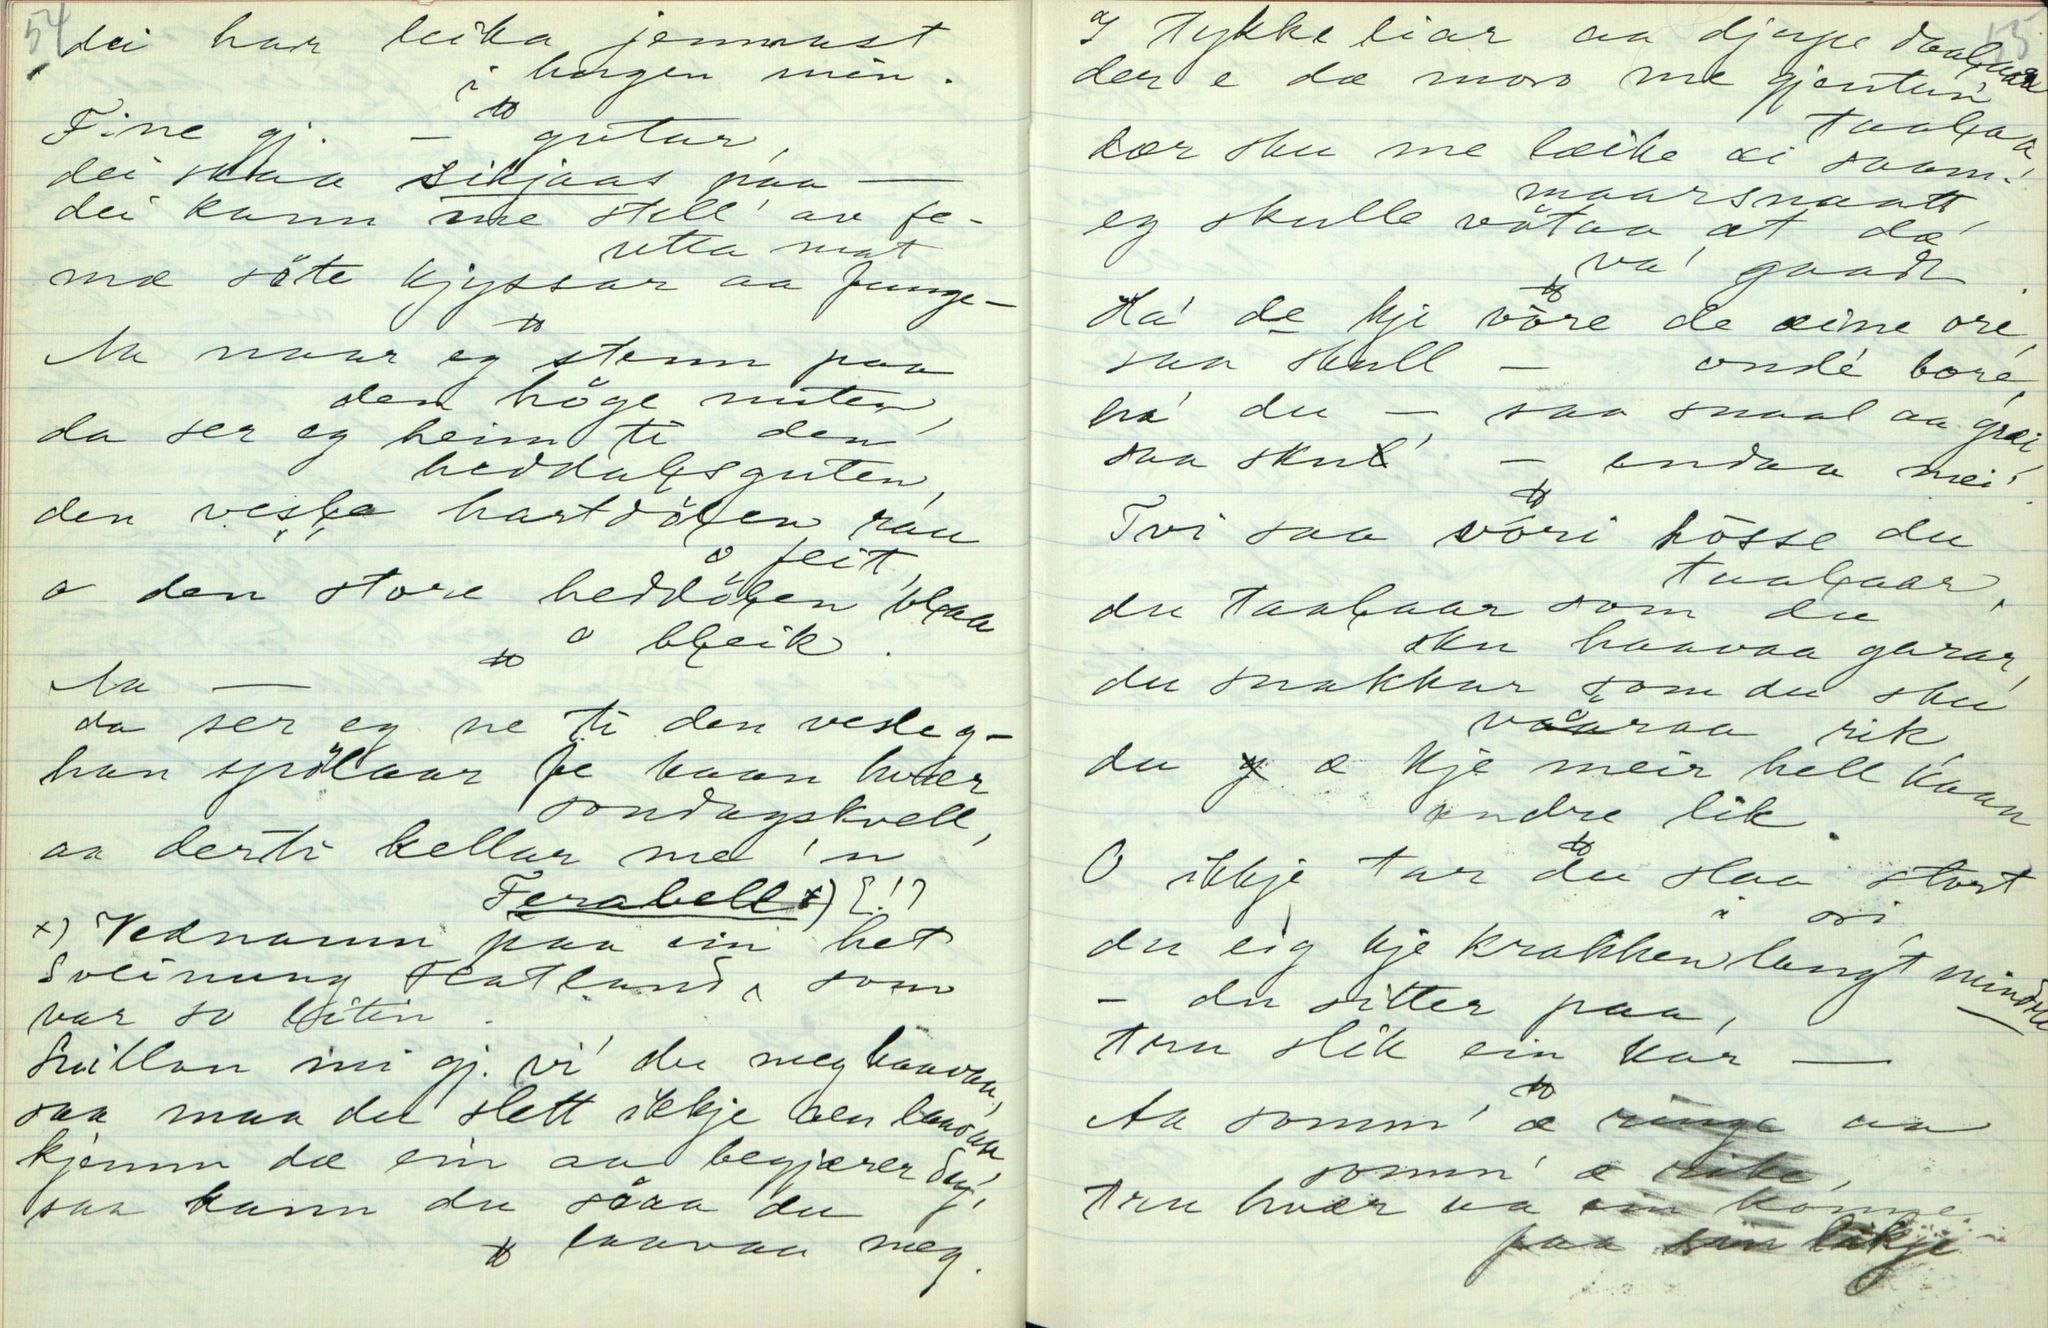 54
dei har leika jemnast
i hugen min.
Fine gj. — gutar,
dei skaa sikjaas paa —
dei kann me stell' av fe-
itta mat
mæ söte kjyssar aa funge-
Aa naar eg stenn paa
den höge nuten,
da ser eg heim ti den
heddalsguten,
den vesle hartdölen rau
o feit,
o den store heddölen blaa
o bleik.
Aa —
da ser eg ne ti den vesle g-
han spölaar fe kaan hvær
sondagskvell,
aa derti hellar me 'n
Ferabell x) [!]
x) Vednamn paa ein het
Sveinung Flatland, som
var so liten.
Snillan mi gj. vi' du meg haavaa,
saa maa du slett ikkje aen laavaa
kjemn dæ ein aa begjærer deg,
saa kann du såaa du
laavaa meg.
55
I tykke liar aa djupe daalaar
der e dæ moro me gjentun
taalaa
hær sku me læike ei saam-
maarsnaatt
eg skulle våtaa at dæ
va' gaadt.
Ha' de kje våre de eine ore,
saa skull — onde bore,
ha' du — saa snaal aa grei
saa skul' — endaa mei'.
Tvi saa våri hösse du
taalaar,
du taalaar som du
sku haavaa garar,
du snakkar som du sku
våaraa rik,
du æ kje meir hell kaan
andre lik.
O ikkje tar du slaa stort
i ori,
du eig kje krakken langt mindre
— du sitter paa,
tru slik ein kar —
Aa somm' æ ringe aa
somm' æ rike,
tru hvær aa ein konne
paa sin likje